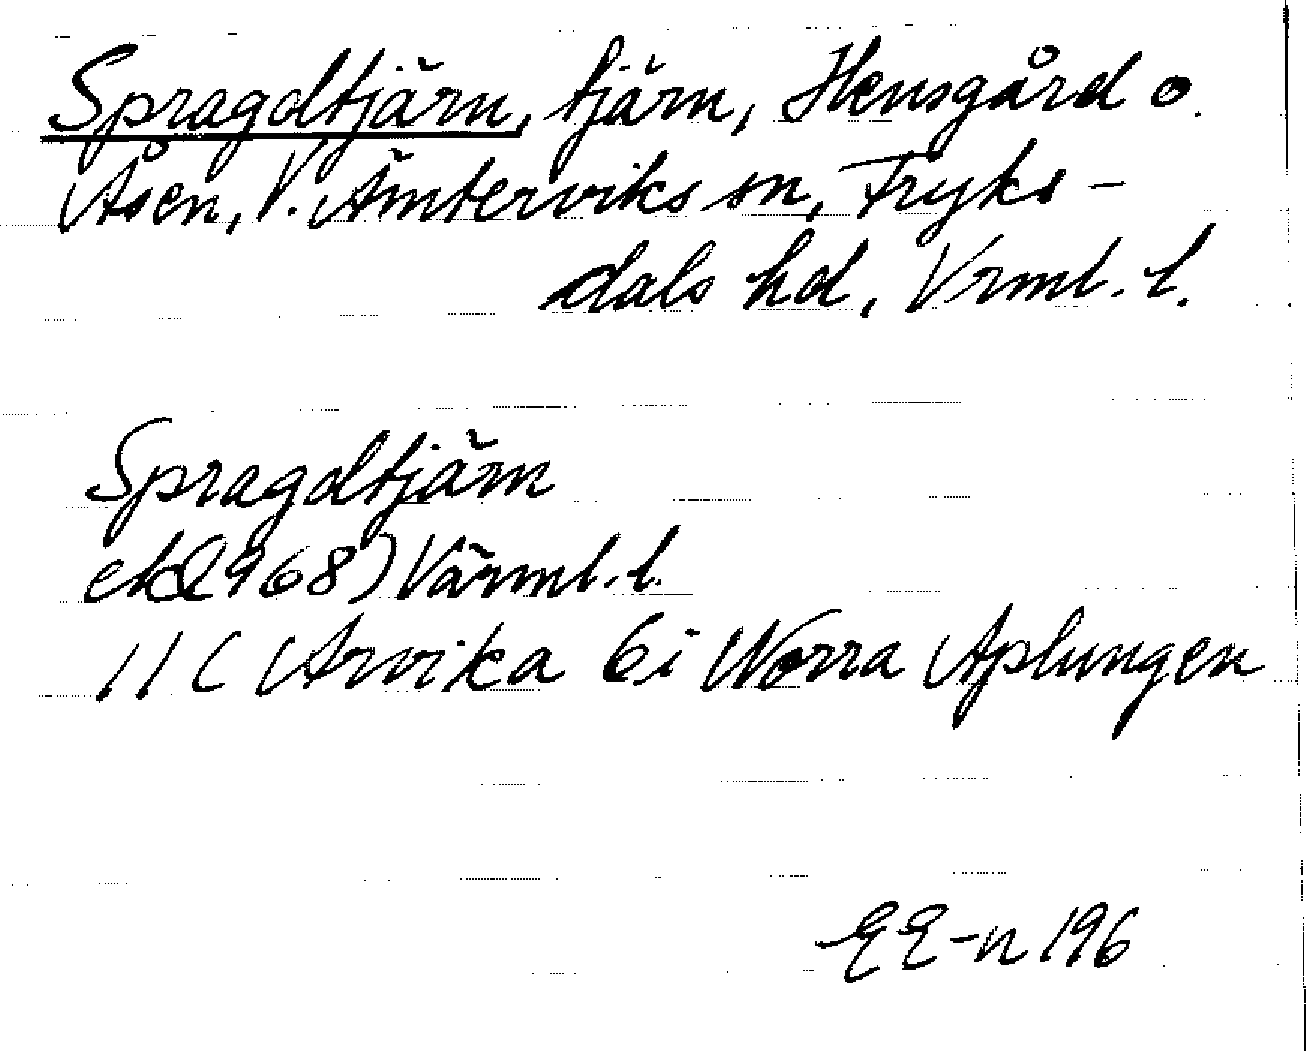 Spragdtjärn, tjärn, Hensgård o.
Åsen, V. Ämterviks sn, Fryks-
dals hd, Vrml. l.
Spragdtjärn
ek(1968) Värml. l.
11 C Arvika 6i Norra Aplungen
EE-n 196